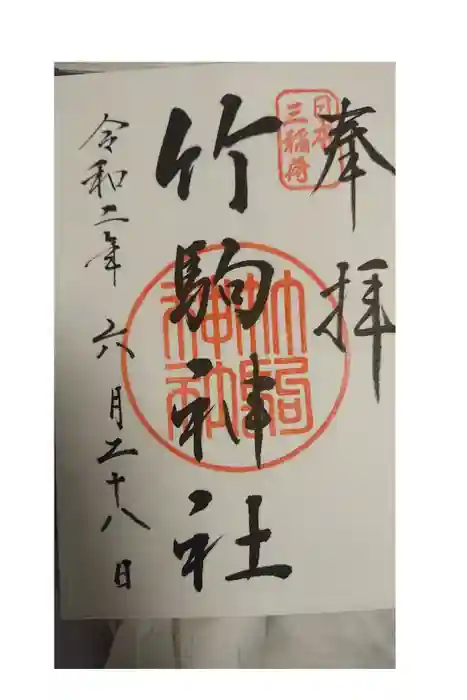 奉拝
日本
三稲荷
竹駒神社
竹駒
神社
令和二年 六月二十八日